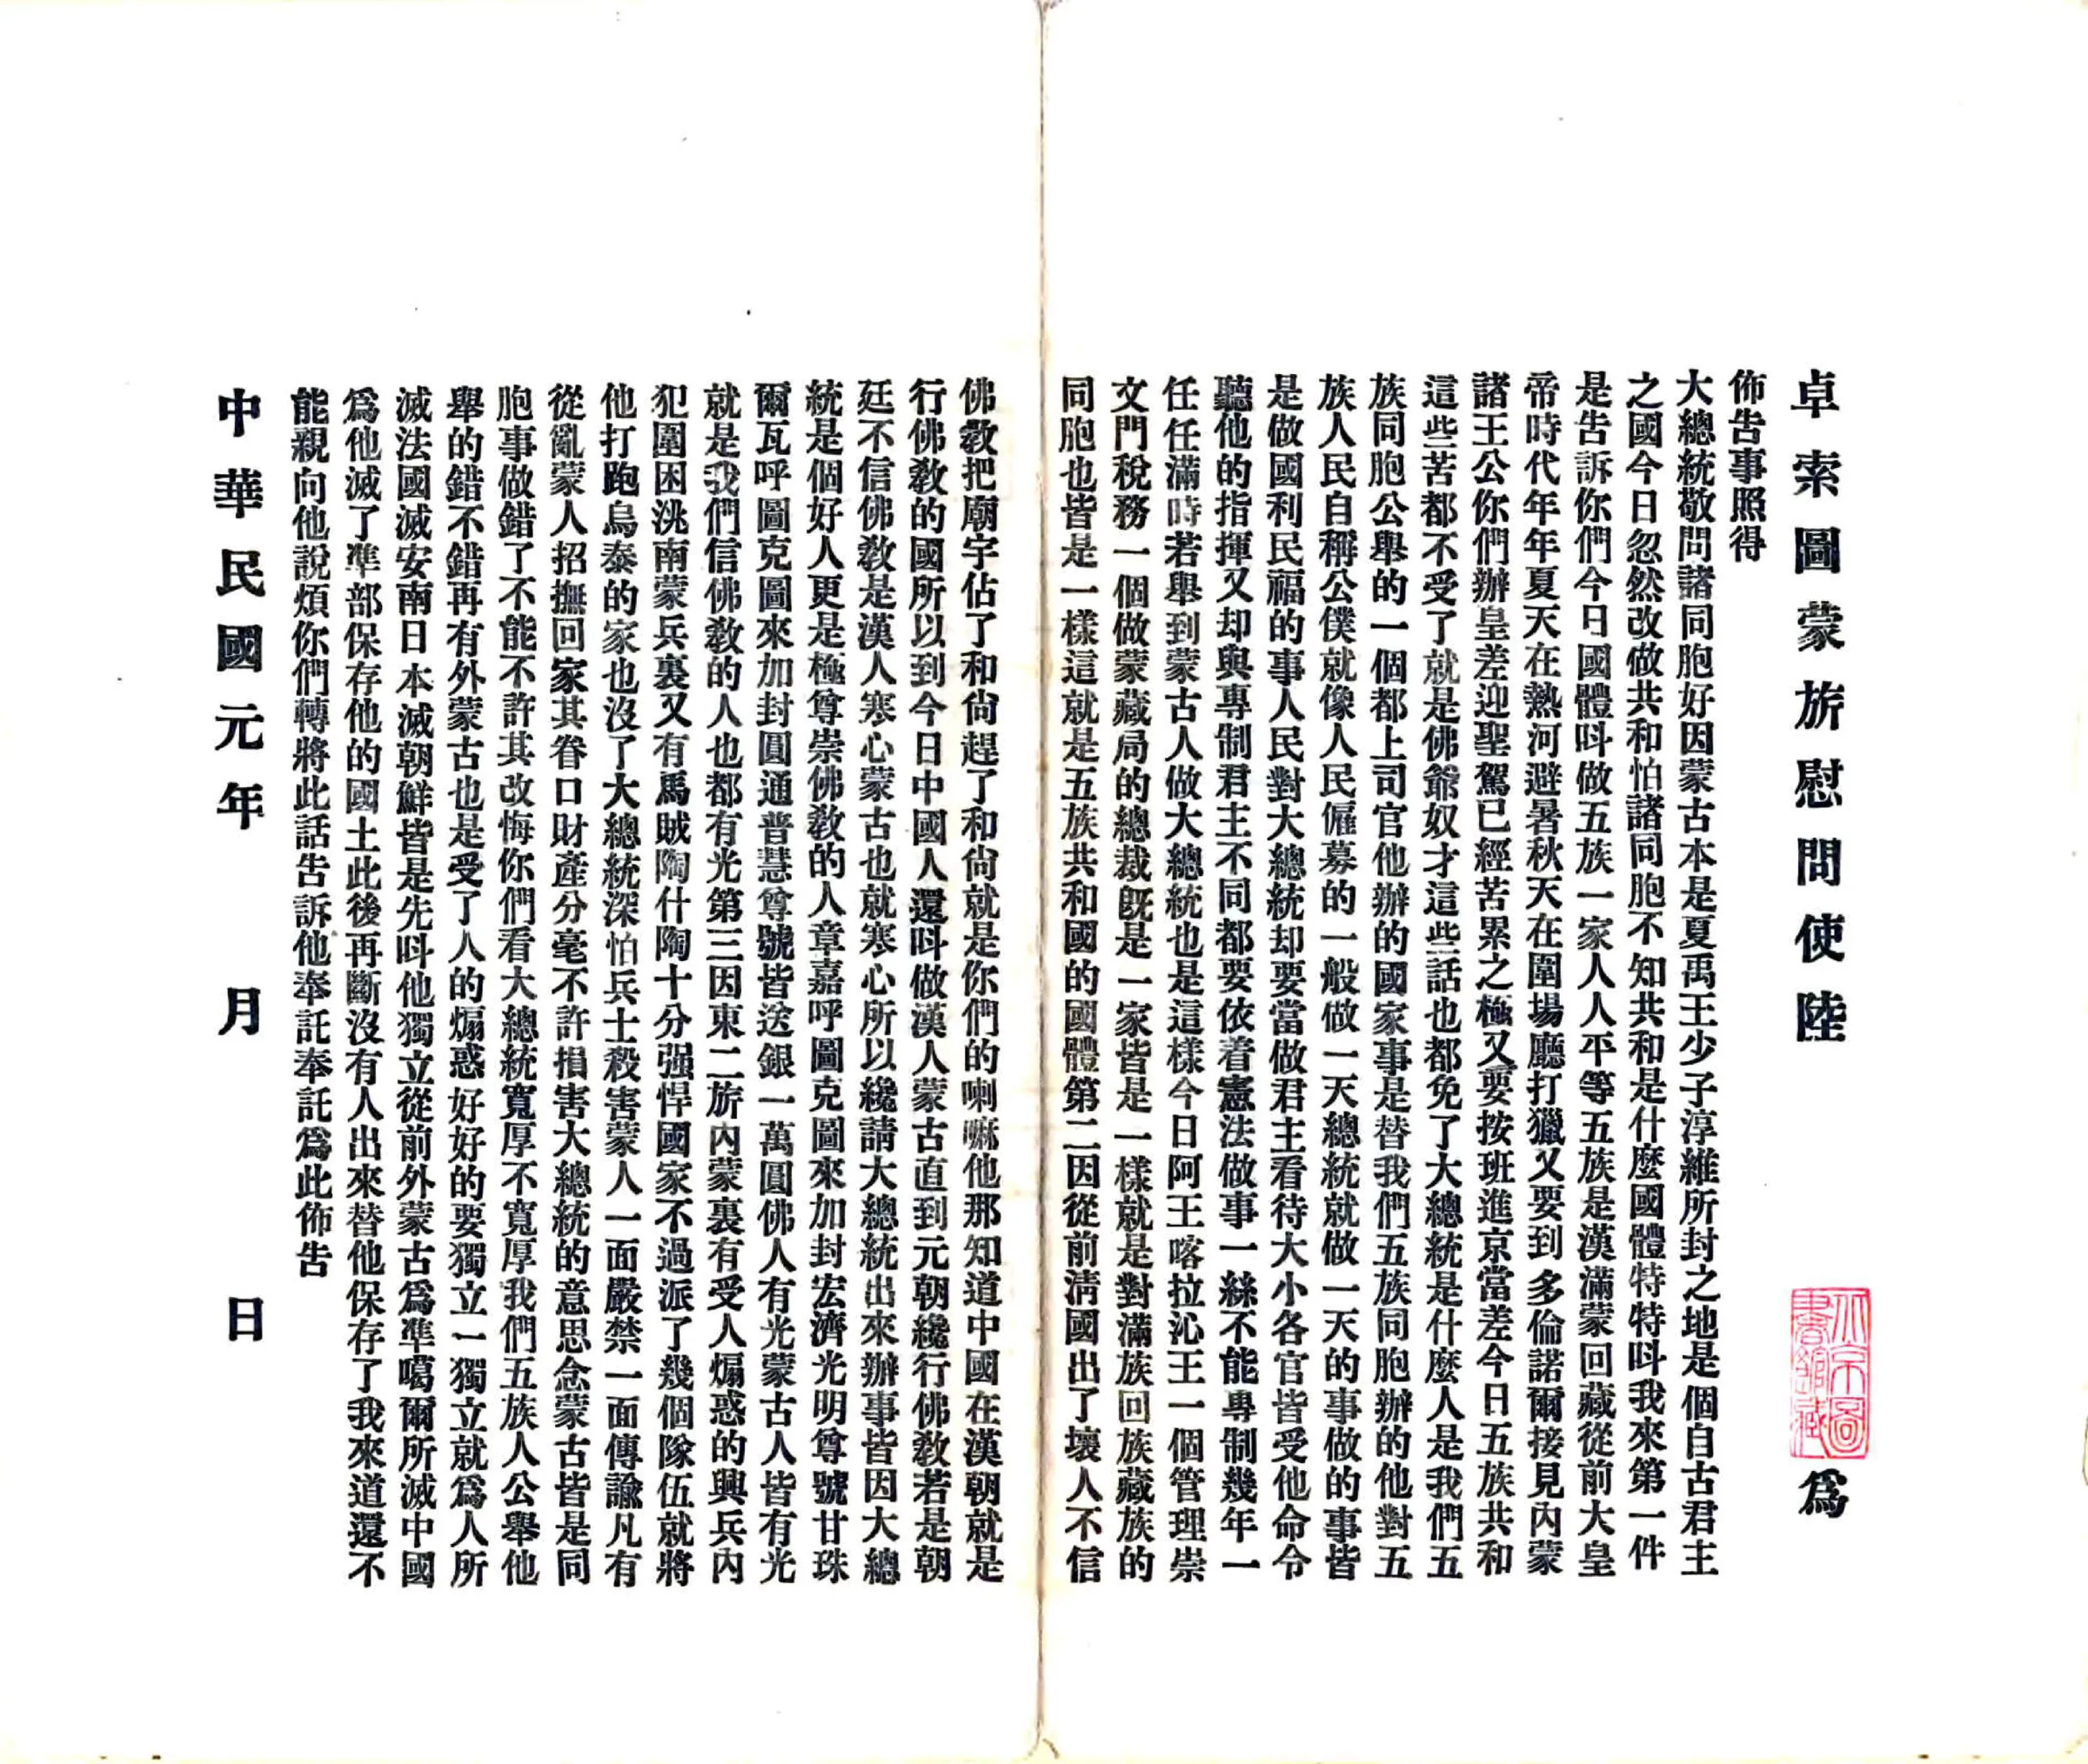 卓索圖蒙旂慰問使陸 爲
佈告事照得
大總統敬問諸同胞好因蒙古本是夏禹王少子淳維所封之地是個自古君主
之國今日忽然改做共和怕諸同胞不知共和是什麼國體特特呌我來第一件
是告訴你們今日國體呌做五族一家人人平等五族是漢滿蒙回藏從前大皇
帝時代年年夏天在熱河避暑秋天在圍場廳打獵又要到多倫諾爾接見內蒙
諸王公你們辦皇差迎聖駕已經苦累之極又要按班進京當差今日五族共和
這些苦都不受了就是佛爺奴才這些話也都免了大總統是什麼人是我們五
族同胞公舉的一個都上司官他辦的國家事是替我們五族同胞辦的他對五
族人民自稱公僕就像人民僱募的一般做一天總統就做一天的事做的事皆
是做國利民福的事人民對大總統却要當做君主看待大小各官皆受他命令
聽他的指揮又却與專制君主不同都要依着憲法做事一絲不能專制幾年一
任任滿時若舉到蒙古人做大總統也是這樣今日阿王喀拉沁王一個管理崇
文門稅務一個做蒙藏局的總裁旣是一家皆是一樣就是對滿族回族藏族的
同胞也皆是一樣這就是五族共和國的國體第二因從前淸國出了壞人不信
佛敎把廟宇佔了和尙趕了和尙就是你們的喇嘛他那知道中國在漢朝就是
行佛敎的國所以到今日中國人還呌做漢人蒙古直到元朝纔行佛敎若是朝
廷不信佛敎是漢人寒心蒙古也就寒心所以纔請大總統出來辦事皆因大總
統是個好人更是極尊崇佛敎的人章嘉呼圖克圖來加封宏濟光明尊號甘珠
爾瓦呼圖克圖來加封圓通普慧尊號皆送銀一萬圓佛人有光蒙古人皆有光
就是我們信佛敎的人也都有光第三因東二旂內蒙裏有受人煽惑的興兵內
犯圍困洮南蒙兵裏又有馬賊陶什陶十分强悍國家不過派了幾個隊伍就將
他打跑烏泰的家也沒了大總統深怕兵士殺害蒙人一面嚴禁一面傳諭凡有
從亂蒙人招撫回家其眷口財產分毫不許損害大總統的意思念蒙古皆是同
胞事做錯了不能不許其改悔你們看大總統寬厚不寬厚我們五族人公舉他
舉的錯不錯再有外蒙古也是受了人的煽惑好好的要獨立一獨立就爲人所
滅法國滅安南日本滅朝鮮皆是先呌他獨立從前外蒙古爲準噶爾所滅中國
爲他滅了準部保存他的國土此後再斷沒有人出來替他保存了我來道還不
能親向他說煩你們轉將此話告訴他奉託奉託爲此佈告
中華民國元年 月 日